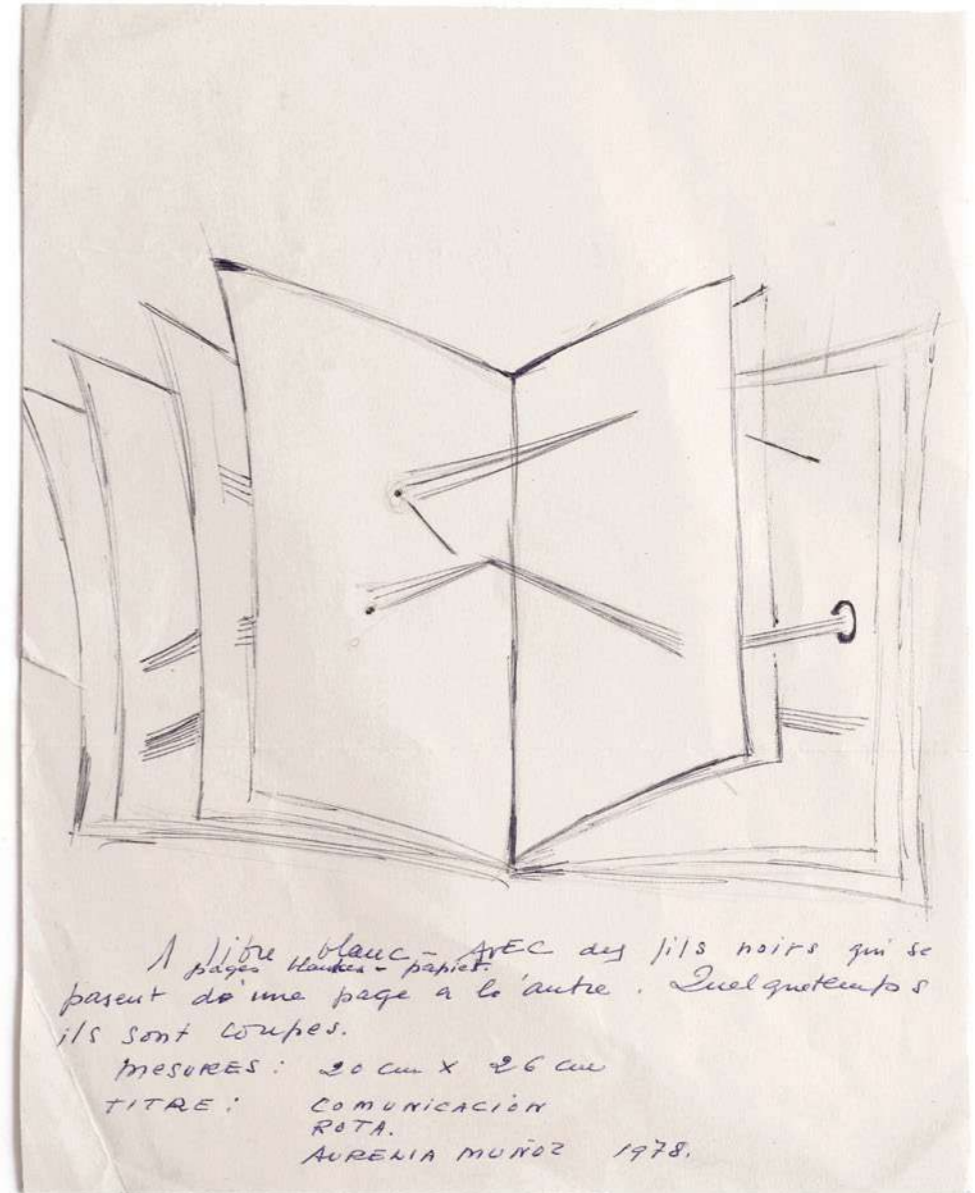 1 libre blanc - AVEC des fils noirs qui se
pages blanches - papier.
pasent de une page a le autre. Quelquetemps
ils sont coupes.
MESURES: 20 cm x 26 cm
TITRE: COMUNICACIÓN
ROTA.
AURELIA MUÑOZ 1978.